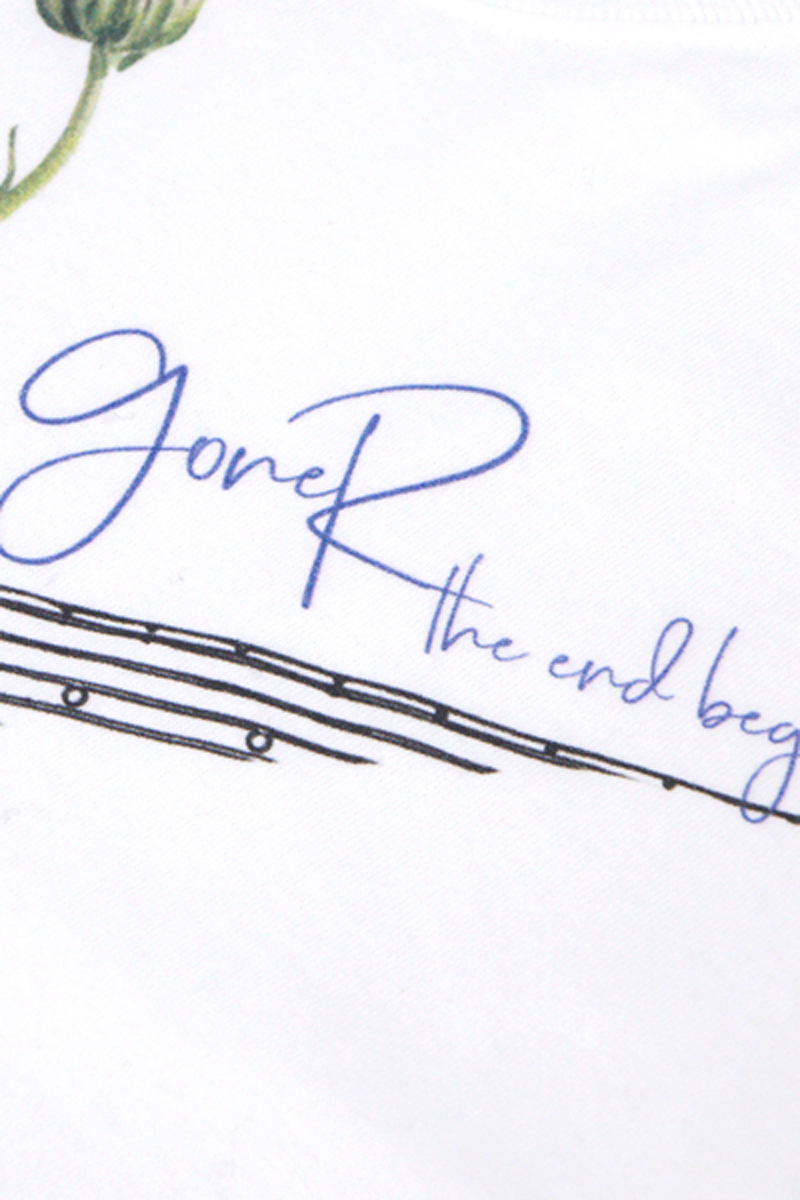 goneR
the end beg